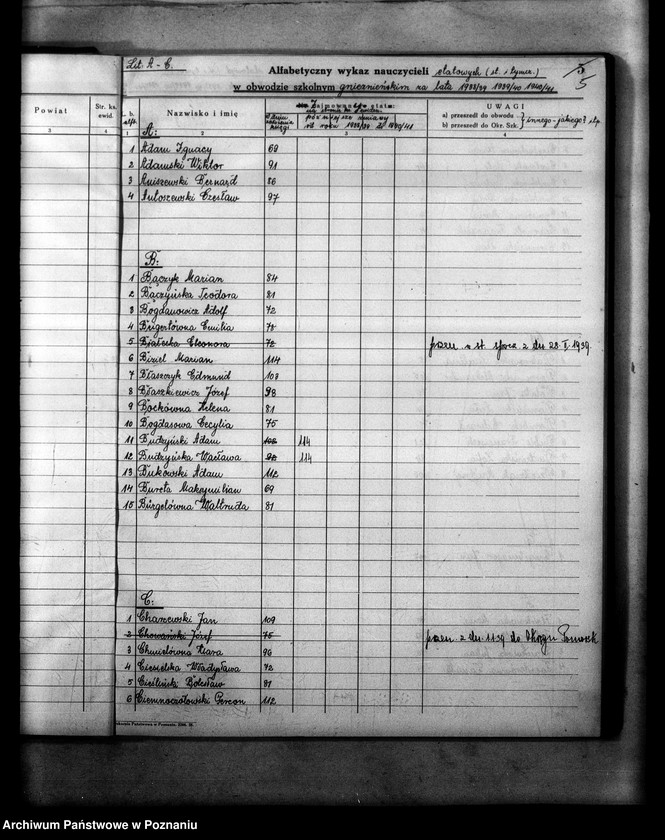 Lit. A - C.
5
5
Alfabetyczny wykaz nauczycieli etatowych (st. i tymcz.)
w obwodzie szkolnym gnieźnieńskim na lata 1938/39 1939/40 1940/41
Powiat
Str. ks. ewid.
L. b. alfb.
Nazwisko i imię
UWAGI
a) przeszedł do obwodu
b) przeszedł do Okr. Szk.
innego - jakiego?
3
4
1
2
3
4
A:
1 Adam Ignacy 69
2 Adamski Wiktor 91
3 Aniszewski Bernard 86
4 Antoszewski Czesław 97
B:
1 Bączyk Marian 84
2 Bączyńska Teodora 81
3 Bogdanowicz Adolf 72
4 Emilia
5 Białecka Eleonora 72 przen. w st. spocz. z dn. 28.II.1939.
6 Marian 114
7 Błaszczyk Edmund 108
8 Błaszkiewicz Józef 98
9 Bockówna Helena 81
10 Bogdasowa Cecylia 75
11 Budzyński Adam 108 114
12 Budzyńska Wacława 98 114
13 Bukowski Adam 112
14 Bureta Maksymilian 69
15 Bürgelówna Waltruda 81
C:
1 Charzewski Jan 109
2 Chowański Józef 75 przen. z dn. 1.1.39 do Okręgu Pomorsk
3 Chmielówna 96
4 Ciesielska Władysława 72
5 Cieśliński Bolesław 81
6 Ciemnoczołowski Gereon 112
Archiwum Państwowe w Poznaniu